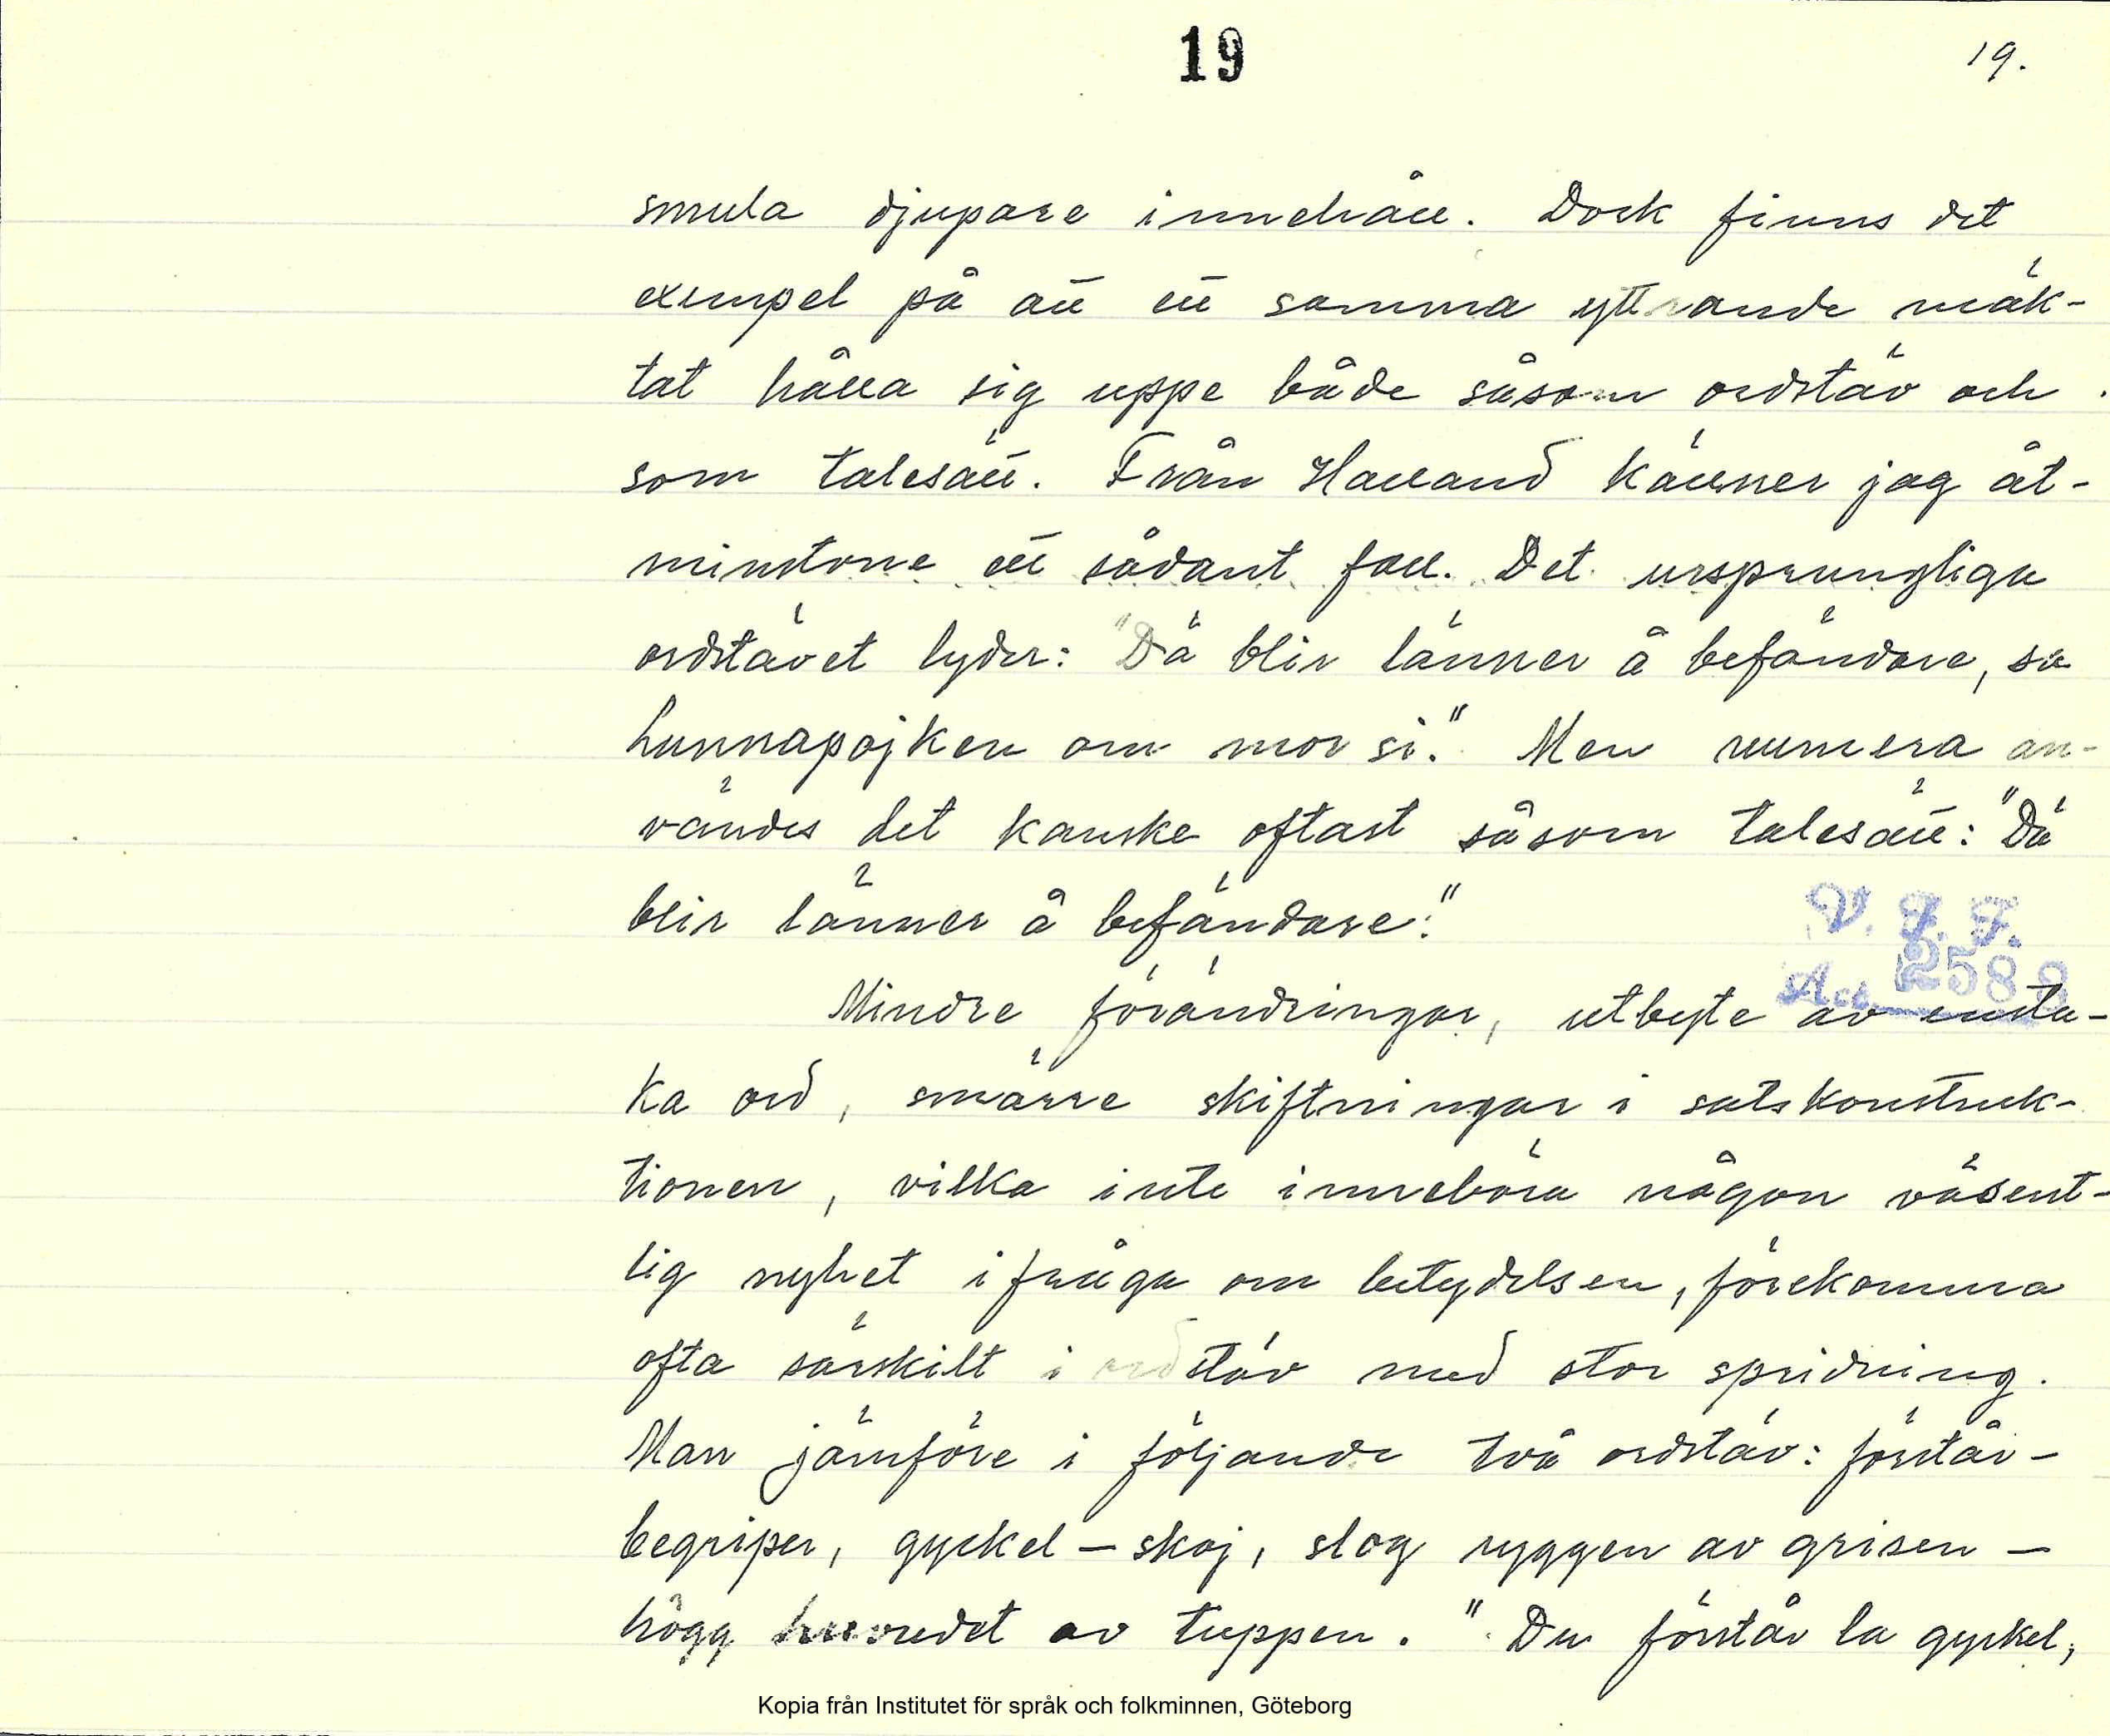 19
19.
smula djupare innehåll. Dock finns det
exempel på att ett samma yttrande mäk-
tat hålla sig uppe både såsom ordstäv och
som talesätt. Från Halland känner jag åt-
minstone ett sådant fall. Det ursprungliga
ordstävet lyder: "Dä blir länner å befändare, sa
Lunnapojken om mor si." Men numera an-
vändes det kanske oftast såsom talesätt: "Dä
blir länner å befändare."
V. F. F.
Acc. 2588
Mindre förändringar, utbyte av ensta-
ka ord, smärre skiftningar i satskonstruk-
tionen, vilka inte innebära någon väsent-
lig nyhet i fråga om betydelsen, förekomma
ofta särskilt i ordstäv med stor spridning.
Man jämföre i följande två ordstäv: förstår -
begriper, gyckel - skoj, slog ryggen av grisen -
högg huvudet av tuppen. "Du förstår la gyckel,
Kopia från Institutet för språk och folkminnen, Göteborg